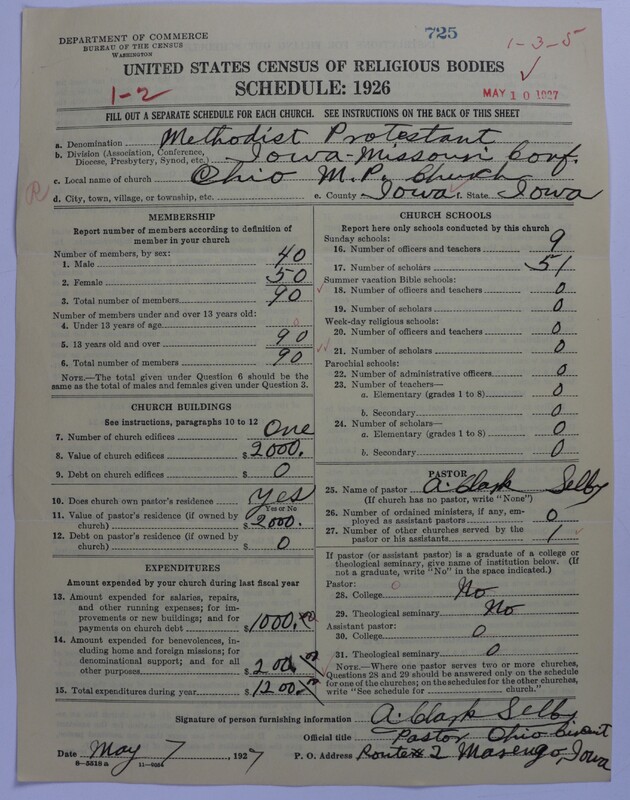 DEPARTMENT OF COMMERCE
BUREAU OF THE CENSUS
WASHINGTON
725
1-3-5
UNITED STATES CENSUS OF RELIGIOUS BODIES
1-2
SCHEDULE: 1926
MAY 10 1927
FILL OUT A SEPARATE SCHEDULE FOR EACH CHURCH. SEE INSTRUCTIONS ON THE BACK OF THIS SHEET
a. Denomination Methodist Protestant
b. Division (Association, Conference, Diocese, Presbytery, Synod, etc.) Iowa-Missouri Conf.
c. Local name of church Ohio M.P. Church
R
d. City, town, village, or township, etc. e. County Iowa f. State Iowa
MEMBERSHIP
Report number of members according to definition of
member in your church
Number of members, by sex:
1. Male 40
2. Female 50
3. Total number of members 90
Number of members under and over 13 years old:
4. Under 13 years of age 0
5. 13 years old and over 90
6. Total number of members 90
NOTE.—The total given under Question 6 should be the
same as the total of males and females given under Question 3.
CHURCH BUILDINGS
See instructions, paragraphs 10 to 12
7. Number of church edifices One
8. Value of church edifices $ 2000.
9. Debt on church edifices $ 0
10. Does church own pastor's residence Yes
Yes or No
11. Value of pastor's residence (if owned by
church) $ 2000.
12. Debt on pastor's residence (if owned by
church) $ 0
EXPENDITURES
Amount expended by your church during last fiscal year
13. Amount expended for salaries, repairs,
and other running expenses; for im-
provements or new buildings; and for
payments on church debt $ 1000.00
14. Amount expended for benevolences, in-
cluding home and foreign missions; for
denominational support; and for all
other purposes $ 200.00
15. Total expenditures during year $ 1200.00
CHURCH SCHOOLS
Report here only schools conducted by this church
Sunday schools:
16. Number of officers and teachers 9
17. Number of scholars 51
Summer vacation Bible schools:
18. Number of officers and teachers 0
19. Number of scholars 0
Week-day religious schools:
20. Number of officers and teachers 0
21. Number of scholars 0
Parochial schools:
22. Number of administrative officers 0
23. Number of teachers—
a. Elementary (grades 1 to 8) 0
b. Secondary 0
24. Number of scholars—
a. Elementary (grades 1 to 8) 0
b. Secondary 0
PASTOR
25. Name of pastor A. Clark Selby
(If church has no pastor, write "None")
26. Number of ordained ministers, if any, em-
ployed as assistant pastors 0
27. Number of other churches served by the
pastor or his assistants 1
If pastor (or assistant pastor) is a graduate of a college or
theological seminary, give name of institution below. (If
not a graduate, write "No" in the space indicated.)
Pastor: 0
28. College No
29. Theological seminary No
Assistant pastor:
30. College 0
31. Theological seminary 0
NOTE.—Where one pastor serves two or more churches,
Questions 28 and 29 should be answered only on the schedule
for one of the churches; on the schedules for the other churches,
write "See schedule for church."
Signature of person furnishing information A. Clark Selby
Official title Pastor Ohio Circuit
Date May 7, 1927 P. O. Address Route # 2 Marengo, Iowa
8-5518 a